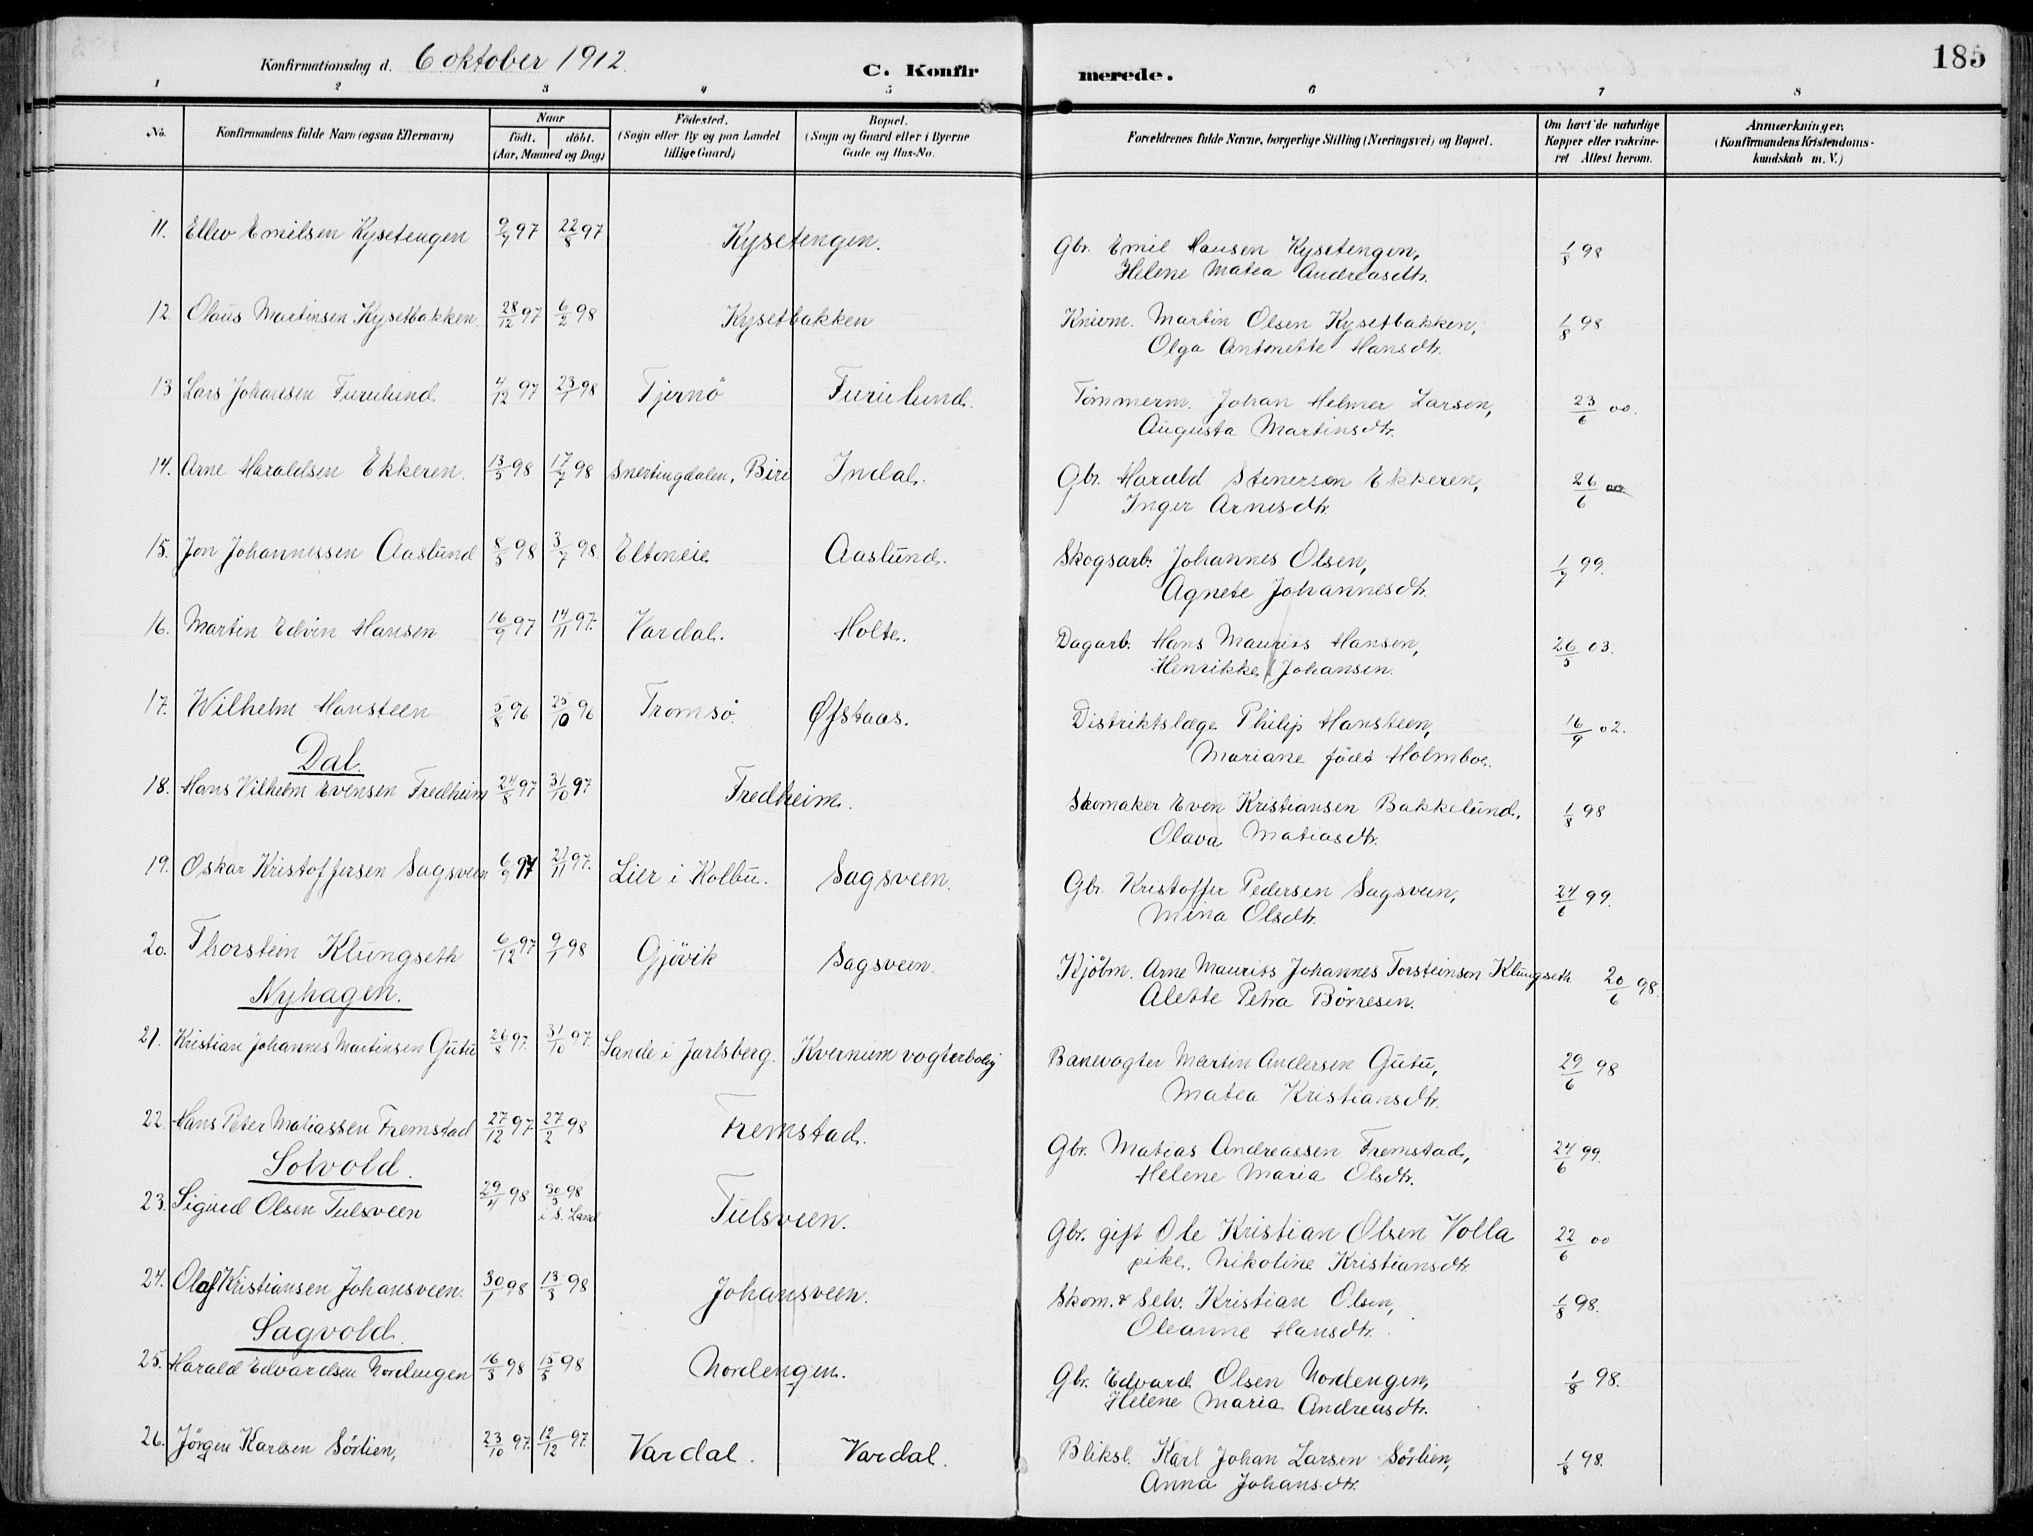 Konfirmationsdag d. 6 oktober 1912.
C. Konfirmerede.
185
1 2 3 4 5 6 7 8
No.
Konfirmandens fulde Navn (ogsaa Efternavn)
Naar
födt. döbt.
(Aar, Maaned og Dag)
Födested.
(Sogn eller By og paa Landet
tillige Gaard)
Bopæl.
(Sogn og Gaard eller i Byerne
Gade og Hus-No.
Forældrenes fulde Navne, borgerlige Stilling (Næringsvei) og Bopæl.
Om havt de naturlige
Kopper eller vakcine-
ret Attest herom.
Anmærkninger.
(Konfirmandens Kristendoms-
kundskab m. V.)
11. Ellev Emilsen Kysetengen 9/7 97 22/8 97 Kysetengen. Gbr. Emil Hansen Kysetengen, 1/8 98
Helene Matea Andreasdtr.
12. Olaus Martinsen Kysetbakken 28/12 97 6/2 98 Kysetbakken Knivm. Martin Olsen Kysetbakken, 1/8 98
Olga Antonette Hansdtr.
13 Lars Johansen Furulund 4/12 97 23/1 98 Tjernö Furulund. Tömmerm. Johan Helmer Larsen, 23/6 00.
Augusta Martinsdtr.
14. Arne Haraldsen Ekkeren. 13/5 98 17/7 98 Snertingdalen, Biri Indal. Gbr. Harald Stenersen Ekkeren, 26/6 00
Inger Arnesdtr.
15. Jon Johannessen Aaslund 8/5 98 3/7 98. Eltoneie Aaslund. Skogsarb. Johannes Olsen, 1/7 99.
Agnete Johannesdtr.
16. Martin Edvin Hansen 16/9 97 14/11 97. Vardal. Holte. Dagarb. Hans Maurits Hansen, 26/5 03.
Henrikke Johansen.
17. Wilhelm Hansteen 5/8 96 25/10 96 Tromsö. Øfstaas. Distriktslæge Philip Hansteen, 16/9 02.
Mariane födt Holmboe.
Dal.
18. Hans Vilhelm Evensen Fredheim 24/8 97 31/10 97. Fredheim. Skomaker Even Kristiansen Bakkelund, 1/8 98
Olava Matiasdtr.
19. Oskar Kristoffersen Sagsveen 6/9 97 21/11 97. Lier i Kolbu. Sagsveen. Gbr. Kristoffer Pedersen Sagsveen, 24/6 99.
Mina Olsdtr.
20. Thorstein Klungseth 6/12 97 9/1 98 Gjövik Sagsveen. Kjöbm. Arne Maurits Johannes Torsteinson Klungseth 20/6 98.
Alette Petra Börresen.
Nyhagen.
21. Kristian Johannes Martinsen Gutu 26/8 97. 31/10 97. Sande i Jarlsberg. Kvernum vogterbolig Banevogter Martin Andersen Gutu, 29/6 98
Matea Kristiansdtr.
22. Hans Peter Matiassen Fremstad 27/12 97. 27/2 98 Fremstad. Gbr. Matias Andreassen Fremstad, 24/6 99.
Helene Maria Olsdtr.
Solvold.
23. Sigurd Olsen Tulsveen 29/4 98 30/5 98 i S. Land Tulsveen. Gbr. gift Ole Kristian Olsen Volla 22/6 00
pike. Nikoline Kristiansdtr.
24. Olaf Kristiansen Johansveen. 30/1 98 13/3 98 Johansveen. Skom. & Selv. Kristian Olsen, 1/8 98.
Oleanne Hansdtr.
Sagvold.
25. Harald Edvardsen Nordengen 16/3 98 15/5 98 Nordengen. Gbr. Edvard Olsen Nordengen, 1/8 98.
Helene Maria Andreasdtr.
26. Jörgen Karlsen Sörlien, 23/10 97. 12/12 97. Vardal. Vardal. Bliksl. Karl Johan Larsen Sörlien, 1/8 98.
Anna Johansdtr.